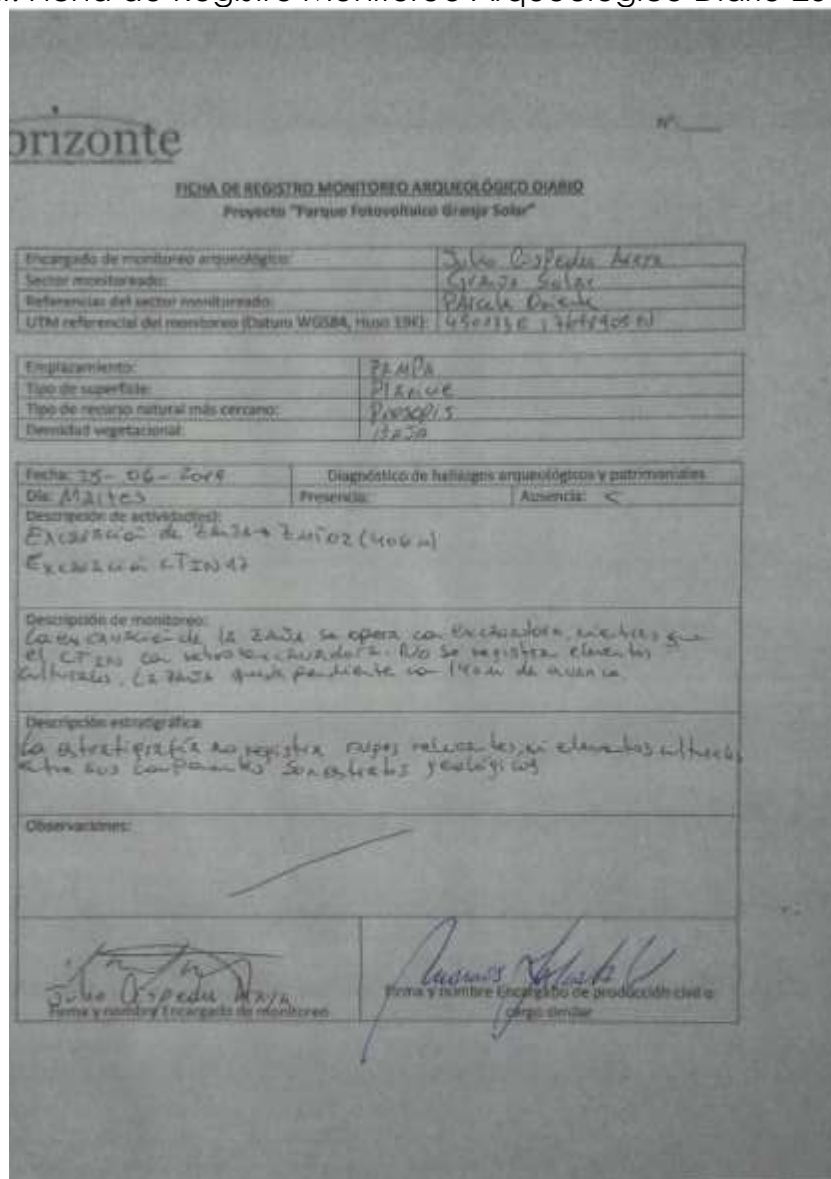 Ficha de Registro Monitoreo Arqueológico Diario
orizonte
N°
FICHA DE REGISTRO MONITOREO ARQUEOLÓGICO DIARIO
Proyecto "Parque Fotovoltaico Granja Solar"
Encargado de monitoreo arqueológico: Julio Cespedes
Sector monitoreado: Granja Solar
Referencias del sector monitoreado: Parcela Oriente
UTM referencial del monitoreo (Datum WGS84, Huso 19K):
Emplazamiento: PAMPA
Tipo de superficie:
Tipo de recurso natural más cercano: Prosopis
Densidad vegetacional: BAJA
Fecha: 25-06-2019 Diagnóstico de hallazgos arqueológicos y patrimoniales
Día: Martes Presencia: Ausencia:
Descripción de actividad(es):
Excavación de zanja (406 m)
Excavación CTIN
Descripción de monitoreo:
La excavación de la zanja se opera con excavadora, mientras que
el CTIN con retroexcavadora. No se registra elementos
culturales. La zanja queda pendiente con 140m de avance
Descripción estratigráfica:
La estratigrafía no registra rasgos relevantes, ni elementos culturales
entre sus componentes. Son estratos geológicos
Observaciones:
Julio Cespedes
Firma y nombre Encargado de monitoreo
Firma y nombre Encargado de producción civil o
cargo similar